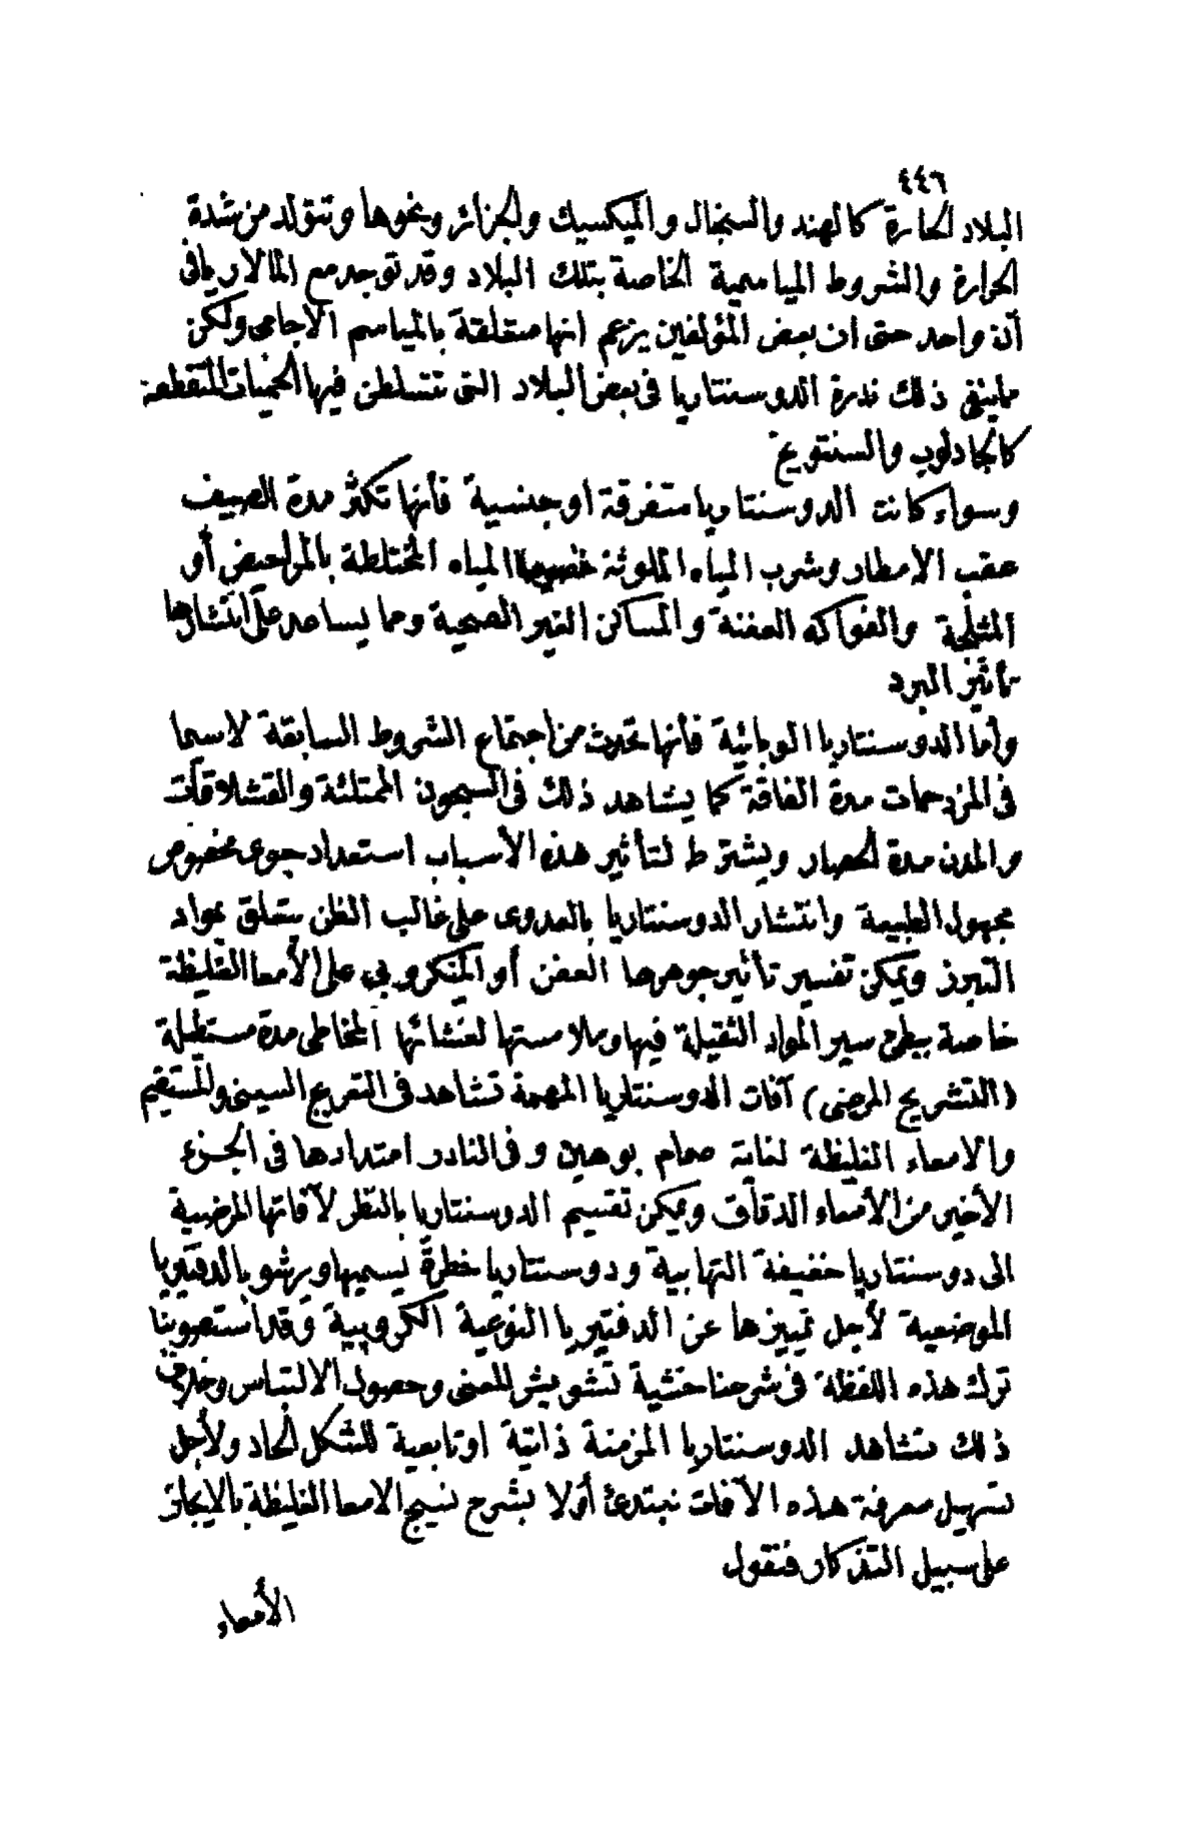 ٤٤٦
البلاد الحارة كالهند والسنجال والميكسيك والجزائر ونحوها وتتولد من شدة
الحرارة والشروط المياسمية الخاصة بتلك البلاد وقد توجد مع المالاريا فى
آن واحد حتى ان بعض المؤلفين يزعم انها متعلقة بالمياسم الآجامى ولكن
مما ينفى ذلك ندرة الدوسنتاريا فى بعض البلاد التى تتسلطن فيها الحميات المتقطعة
كالجادلوب والسنتوريخ
وسواء كانت الدوسنتاريا متفرقة او جنسية فأنها تكثر مدة الصيف
عقب الامطار وشرب المياه الملوثة خصوصا المياه المختلطة بالمراحيض أو
المثلجة والفواكه العفنة والمساكن الغير الصحية ومما يساعد على انتشارها
تأثير البرد
وأما الدوسنتاريا الوبائية فأنها تحدث من اجتماع الشروط السابقة لاسيما
فى المزدحمات مدة الفاقة كما يشاهد ذلك فى السجون الممتلئة والقشلاقات
والمدن مدة الحصار ويشترط لتأثير هذه الأسباب استعداد جوى مخصوص
مجهول الطبيعة وانتشار الدوسنتاريا بالعدوى على غالب الظن يتعلق بمواد
التبرز ويمكن تفسير تأثير جوهرها العفن أو الميكروبى على الأمعا الغليظة
خاصة ببطئ سير المواد الثقيلة فيها وملامستها لغشائها المخاطى مدة مستطيلة
(التشريح المرضى) آفات الدوسنتاريا المهمة تشاهد فى التعريج السينى والمستقيم
والامعاء الغليظة لغاية صمام بوهين وفى النادر امتدادها فى الجزء
الأخير من الأمعاء الدقاق ويمكن تقسيم الدوسنتاريا بالنظر لآفاتها المرضية
الى دوسنتاريا خفيفة التهابية ودوسنتاريا خطرة يسميها ويرشو بالدفتيريا
الموضعية لأجل تمييزها عن الدفتيريا النوعية الكروبية وقد استصوبنا
ترك هذه اللفظة فى شرحنا خشية تشويش للمعنى وحصول الالتباس وخلاف
ذلك تشاهد الدوسنتاريا المزمنة ذاتية او تابعية للشكل الحاد ولأجل
تسهيل معرفة هذه الآفات نبتدئ أولا بشرح نسيج الامعا الغليظة بالايجاز
على سبيل التذكار فنقول
الأمعاء